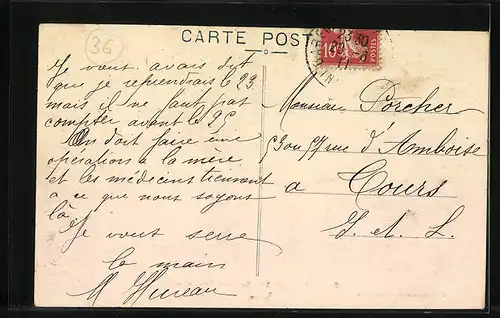 36
CARTE POSTALE
10
POSTES
Je vous avais dit
que je reprendrais le 23
mais il ne faut pas
compter avant le 25
On doit faire une
opération à la mère
et les médecins tiennent
à ce que nous soyons
là.
Je vous serre
la main
M Hureau
Monsieur Porcher
rue d'Amboise
a Tours
I. et L.